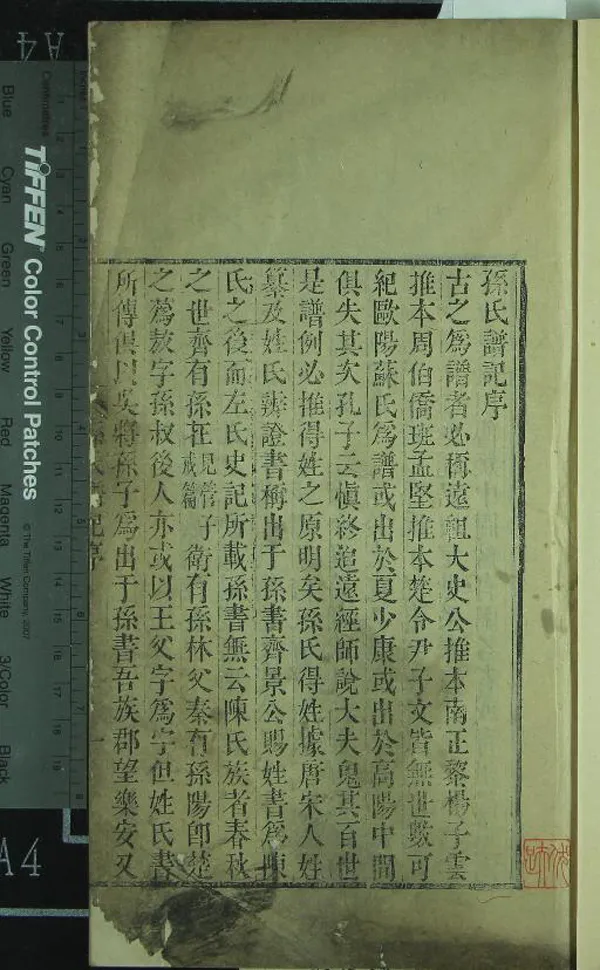 孫氏譜記序
古之爲譜者必稱遠祖大史公推本南正黎楊子雲
推本周伯僑班孟堅推本楚令尹子文皆無世數可
紀歐陽蘇氏爲譜或出於夏少康或出於高陽中間
俱失其次孔子云愼終追遠經師說大夫鬼其百世
是譜例必推得姓之原明矣孫氏得姓據唐宋人姓
纂及姓氏辨證書稱出于孫書齊景公賜姓書爲陳
氏之後而左氏史記所載孫書無云陳氏族者春秋
之世齊有孫在見管子戒篇衛有孫林父秦有孫陽卽楚
之蔿敖字孫叔後人亦或以王父字爲字但姓氏書
所傳俱以吳將孫子爲出于孫書吾族郡望樂安又
TIFFEN Color Control Patches
© The Tiffen Company, 2007
Centimetres
Blue
Cyan
Green
Yellow
Red
Magenta
White
3/Color
Black
A4
A4